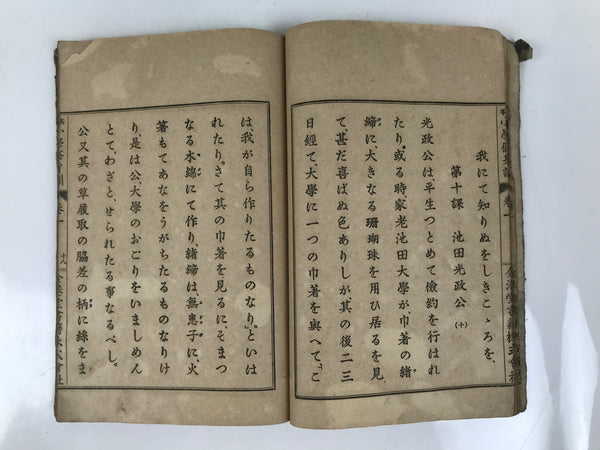 我にて知りぬをしきこゝろを、
第十課　池田光政公(十)
光政公は、平生つとめて儉約を行はれ
たり。或る時家老池田大學が、巾著の緒
締に大きなる珊瑚珠を用ひ居るを見
て、甚だ喜ばぬ色ありしが、其の後二三
日經て、大學に一つの巾著を與へて、「こ
は、我が自ら作りたるものなり」といは
れたり。さて其の巾著を見るに、そまつ
なる木綿にて作り、緒締は、無患子に、火
箸もてあなをうがちたるものなりけ
り。是は公、大學のおごりをいましめん
とて、わざと、せられたる事なるべし。
公又其の草履取の脇差の柄に絲をま
卷一
十八